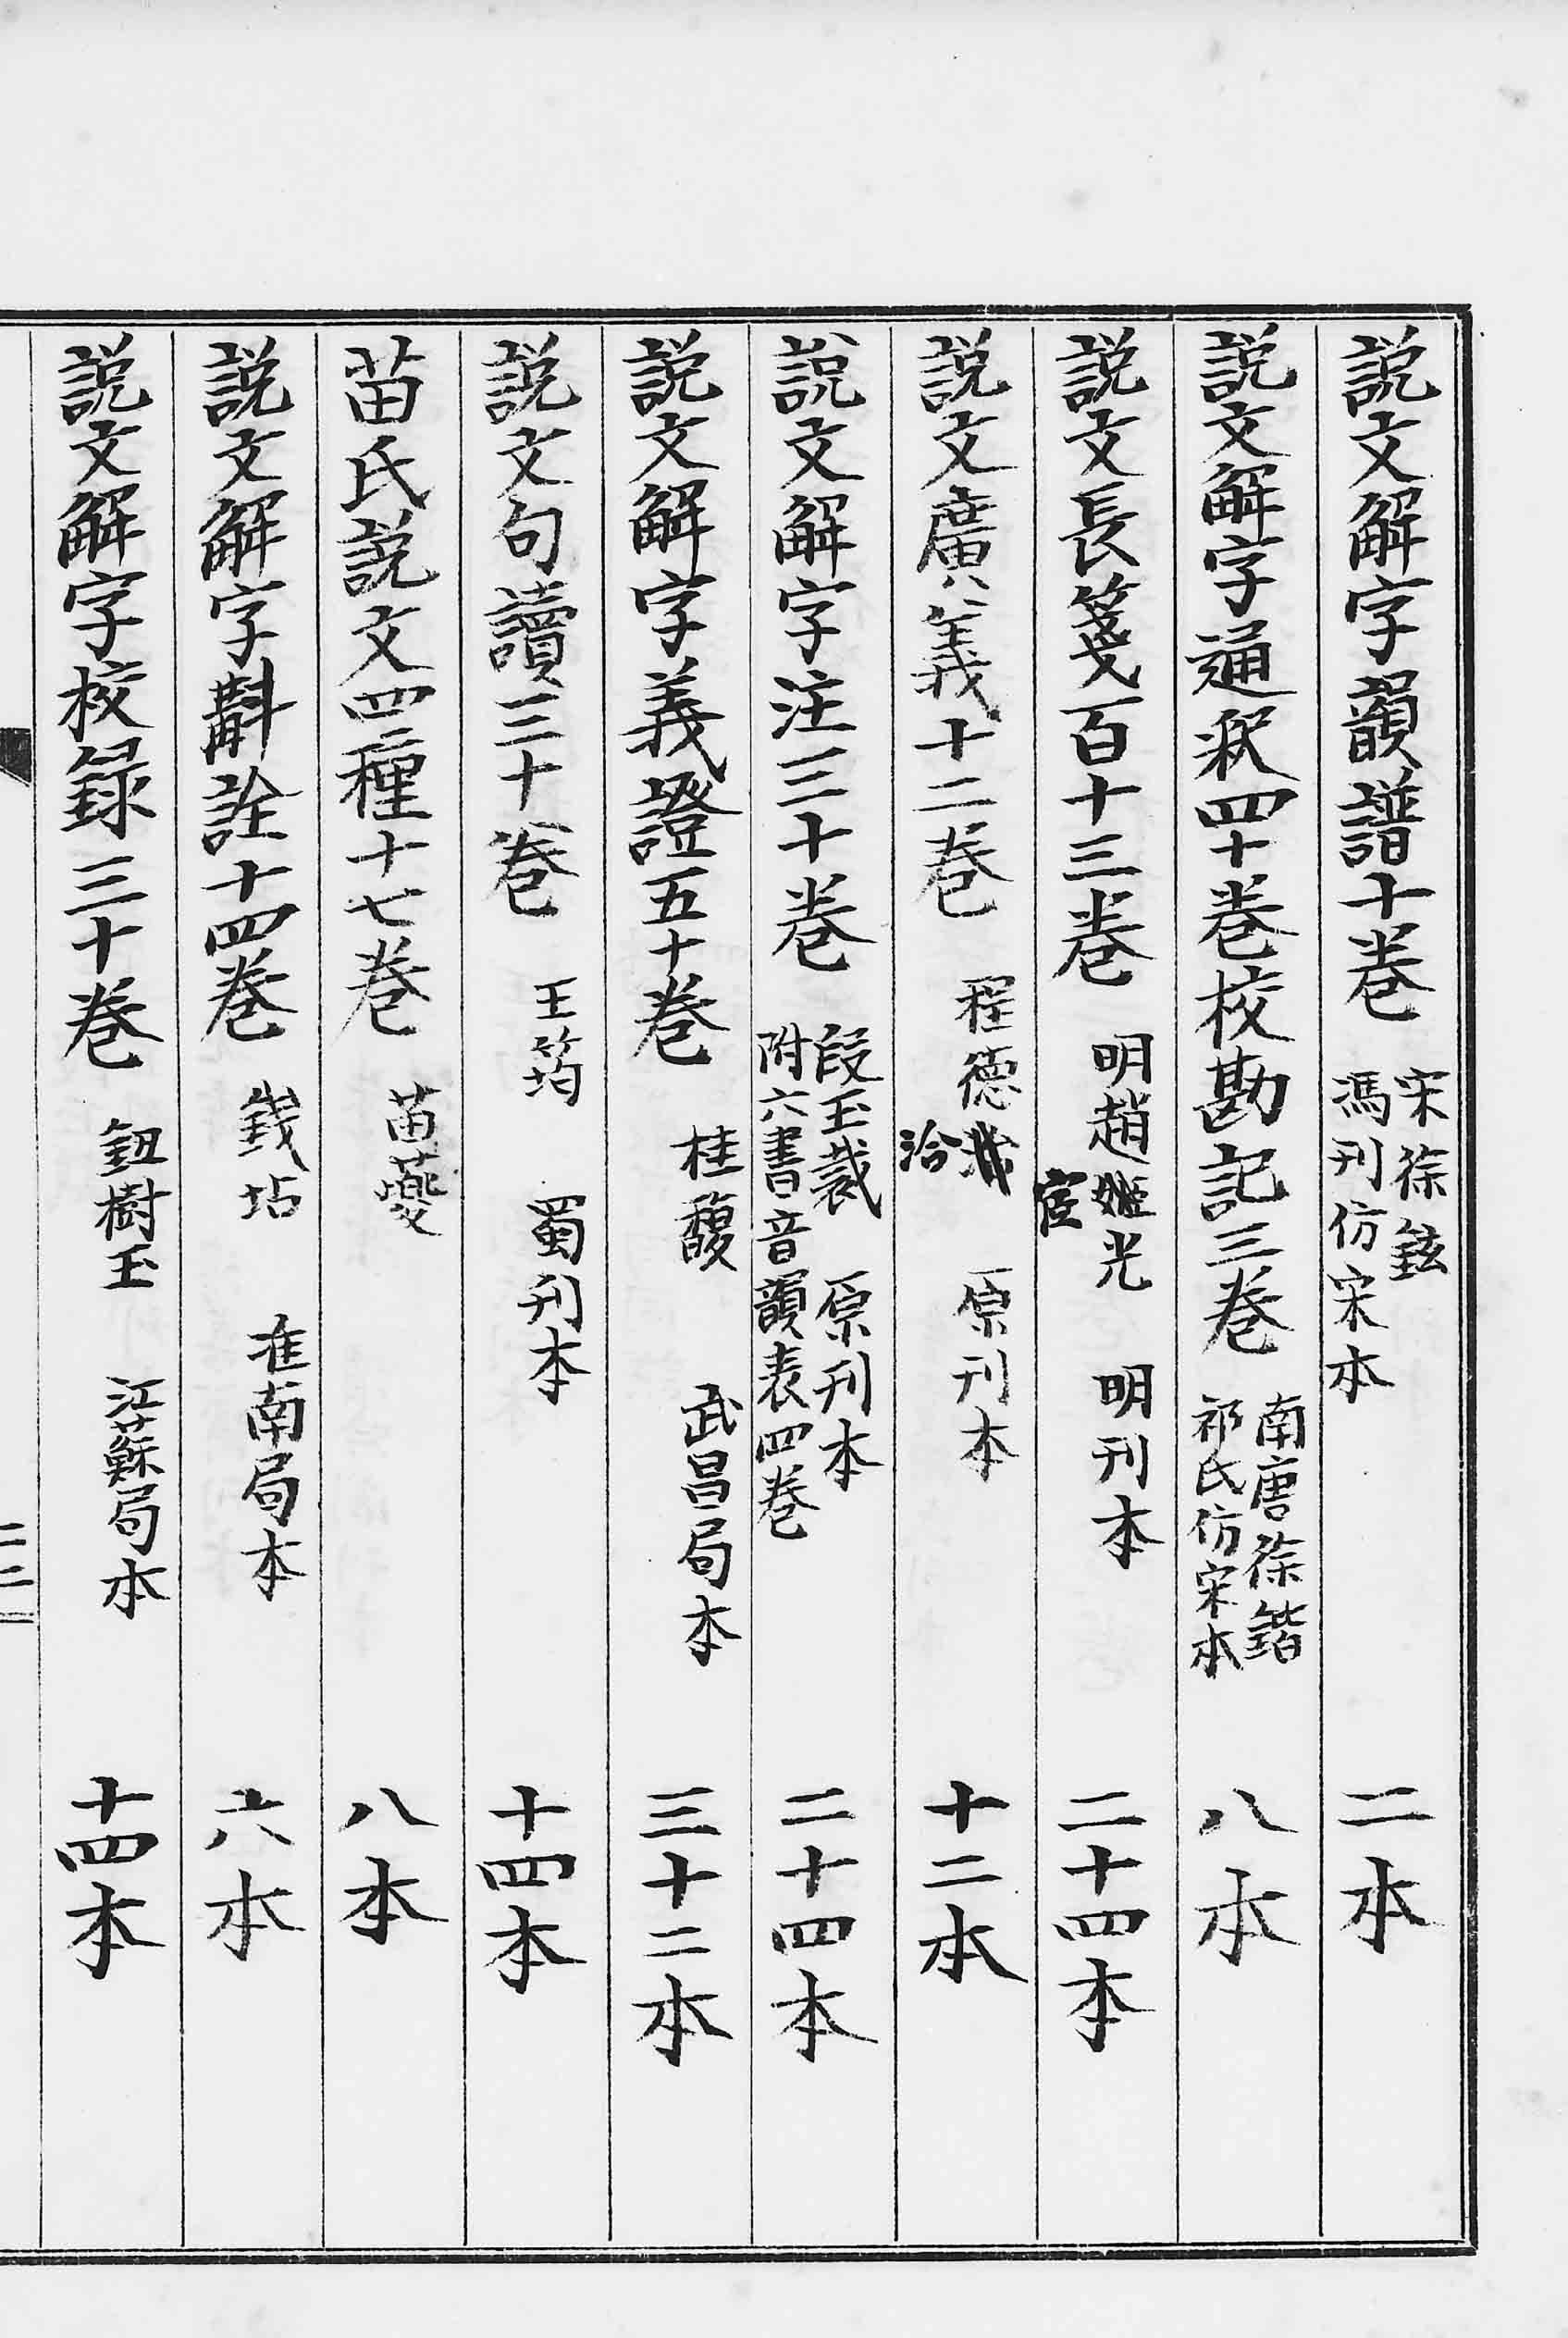 説文解字韻譜十巻 宋徐鉉 馮刋仿宋本 二本
説文解字通釈四十巻校勘記三巻 南唐徐鍇 祁氏仿宋本 八本
説文長箋百十三巻 明趙宧光 明刋本 二十四本
説文廣義十二巻 程德洽 原刋本 十二本
説文解字注三十巻 段玉裁 原刋本 附六書音韻表四巻 二十四本
説文解字義證五十巻 桂馥 武昌局本 三十二本
説文句讀三十巻 王筠 蜀刋本 十四本
苗氏説文四種十七巻 苗夔 八本
説文解字斠詮十四巻 錢坫 淮南局本 六本
説文解字校録三十巻 鈕樹玉 江蘇局本 十四本
二三